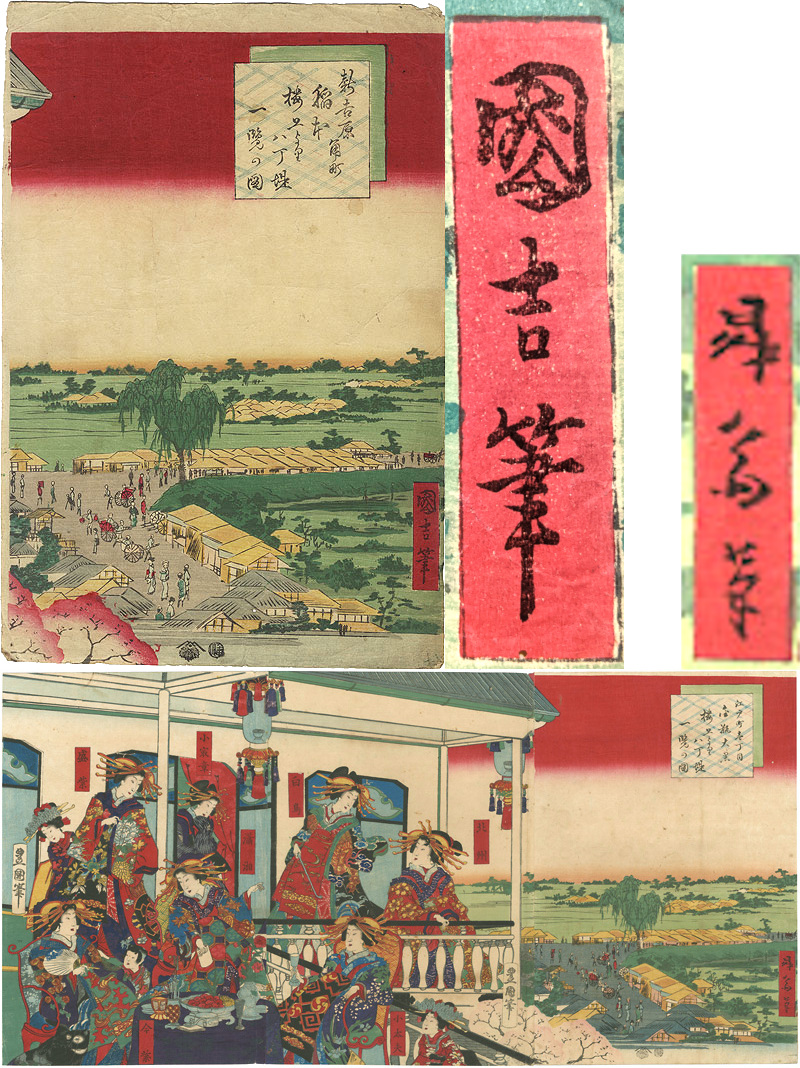 新吉原角町
稲本
楼上より八丁堤
一覧の図
國吉筆
國吉筆
昇斎筆
江戸町壱丁目
金瓶大黒
楼上より八丁堤
一覧の図
豊國筆
今紫
小太夫
豊國筆
昇斎筆